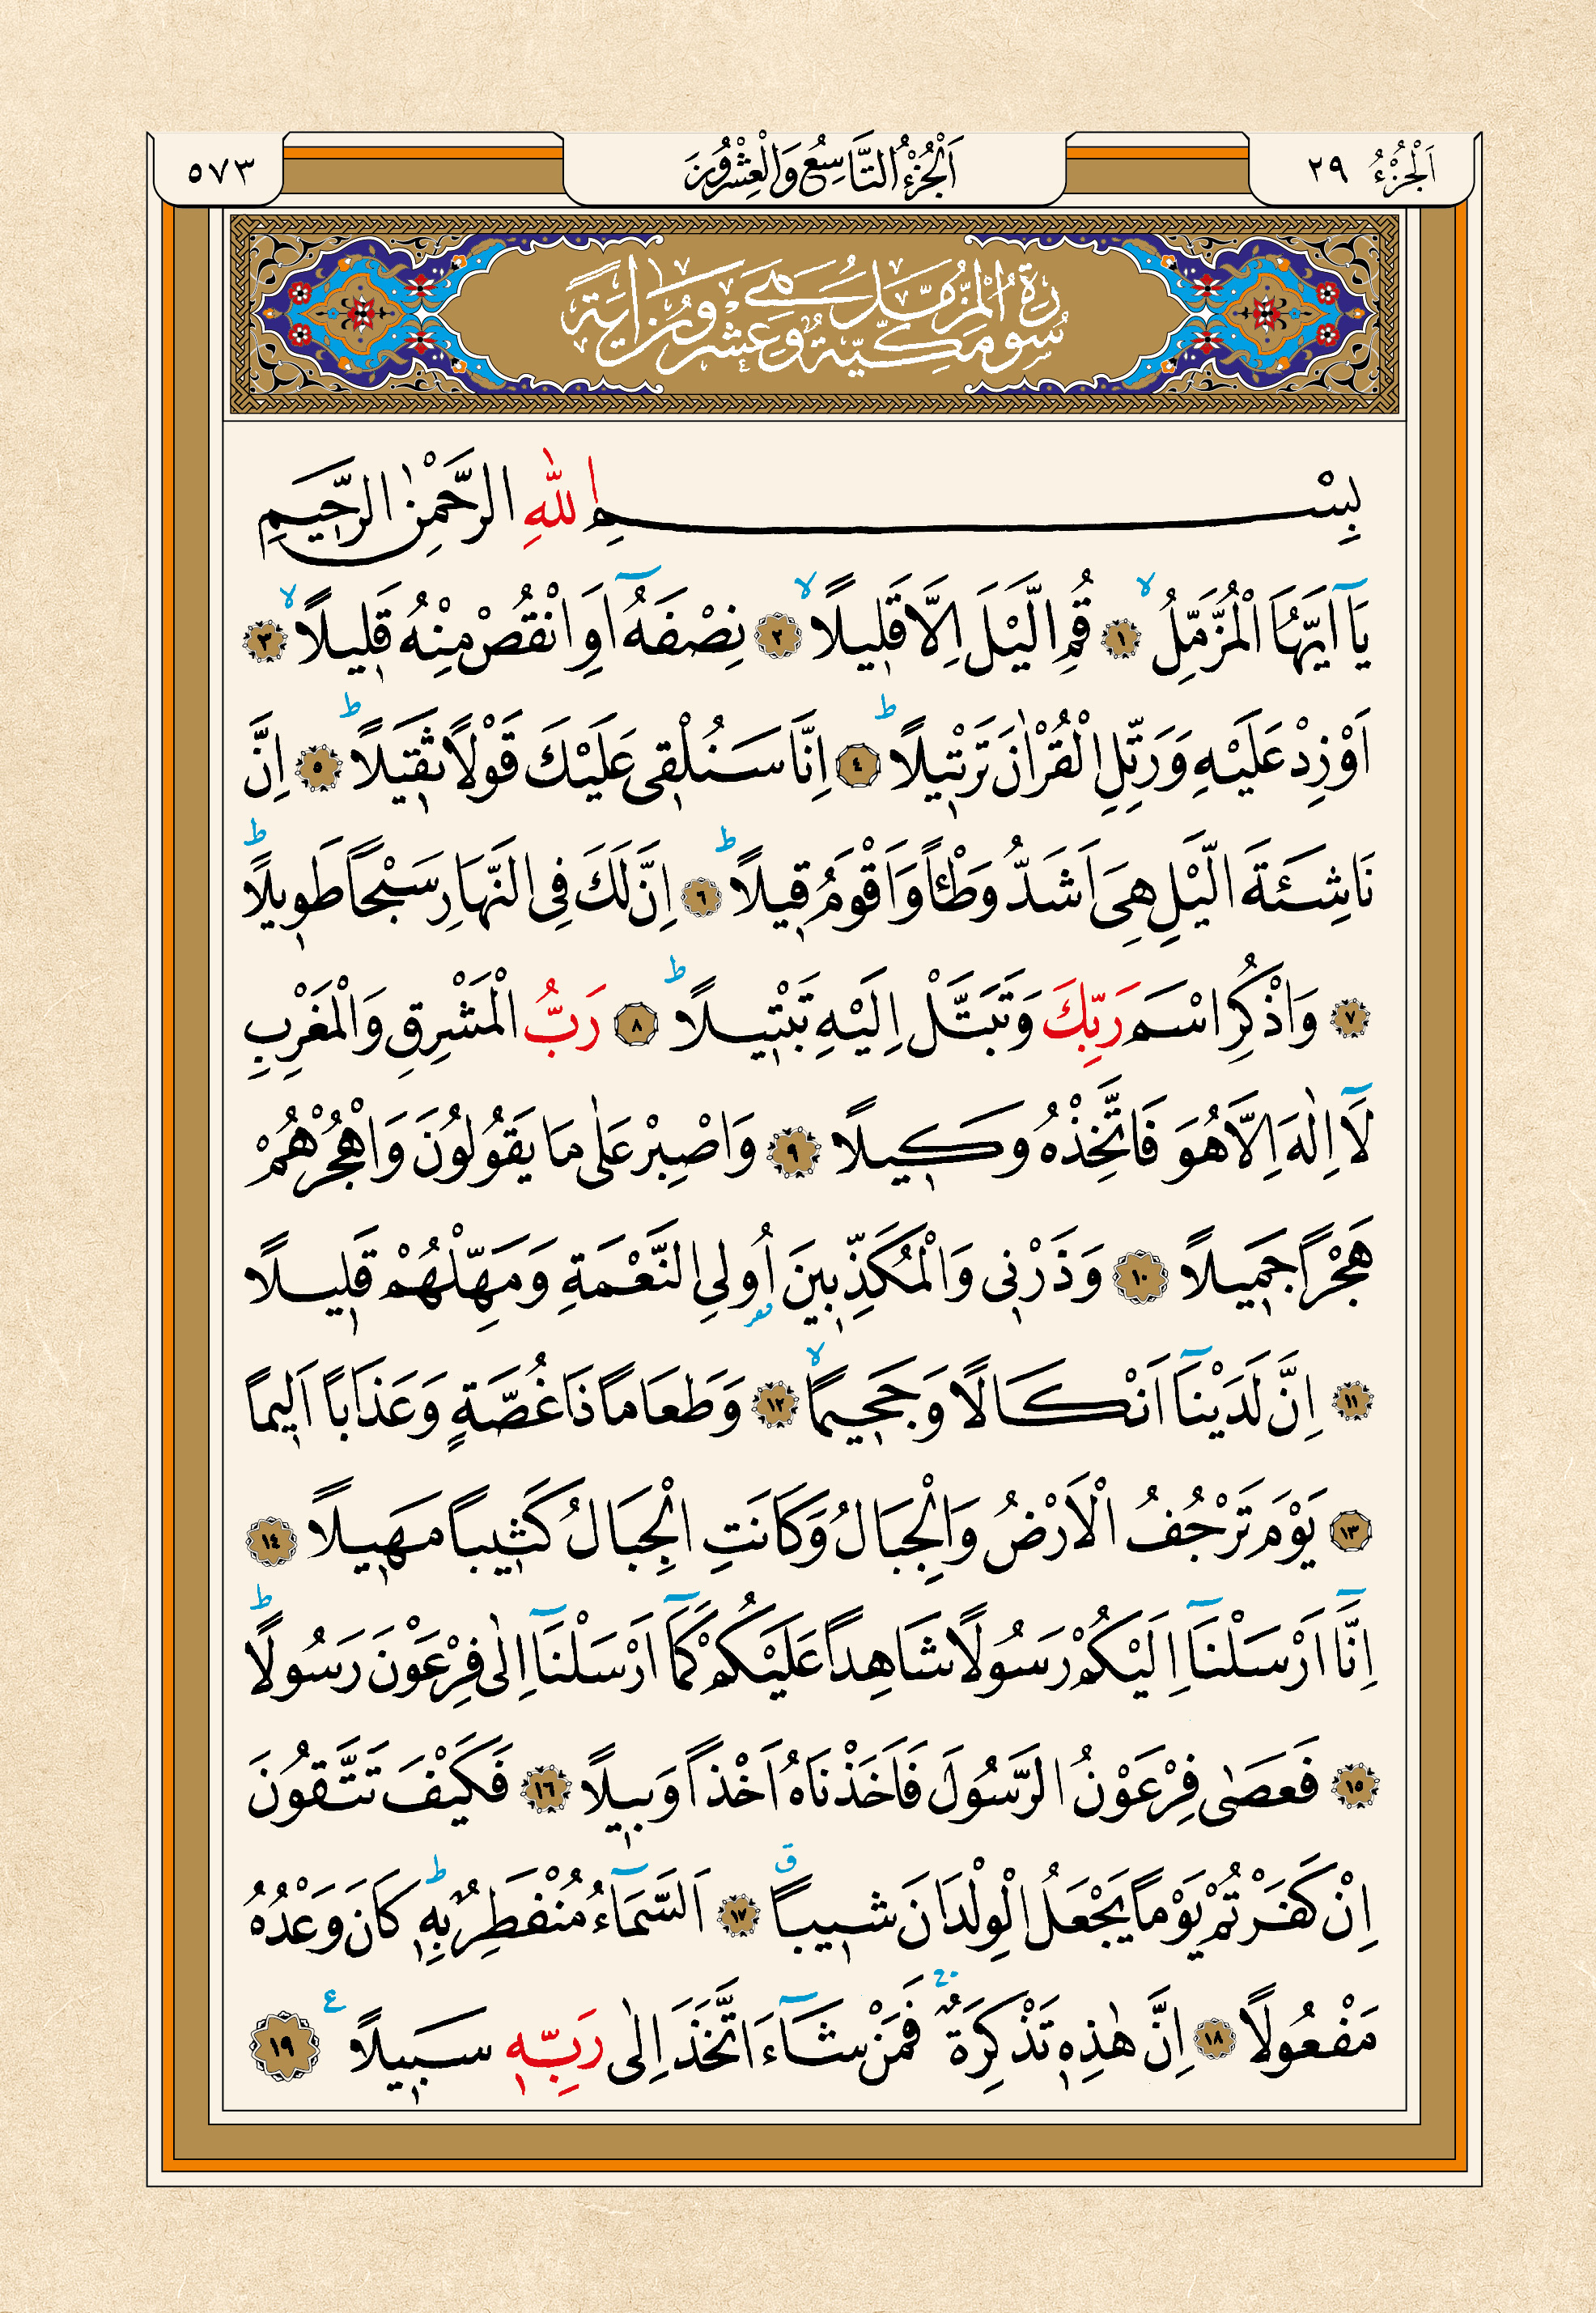 اَلْجُزْءُ ٢٩
اَلْجُزْءُ التَّاسِعُ وَالْعِشْرُونَ
٥٧٣
سُورَةُ الْمُزَّمِّلِ مَكِّيَّةٌ وَهِيَ عِشْرُونَ اٰيَةً
بِسْمِ اللّٰهِ الرَّحْمٰنِ الرَّحِيمِ
يَٓا اَيُّهَا الْمُزَّمِّلُۙ ﴿١﴾ قُمِ الَّيْلَ اِلَّا قَلِيلًاۙ ﴿٢﴾ نِصْفَهُٓ اَوِ انْقُصْ مِنْهُ قَلِيلًاۙ ﴿٣﴾
اَوْ زِدْ عَلَيْهِ وَرَتِّلِ الْقُرْاٰنَ تَرْتِيلًاۜ ﴿٤﴾ اِنَّا سَنُلْقِي عَلَيْكَ قَوْلًا ثَقِيلًاۜ ﴿٥﴾ اِنَّ
نَاشِئَةَ الَّيْلِ هِيَ اَشَدُّ وَطْـًٔا وَاَقْوَمُ قِيلًاۜ ﴿٦﴾ اِنَّ لَكَ فِي النَّهَارِ سَبْحًا طَوِيلًاۜ
﴿٧﴾ وَاذْكُرِ اسْمَ رَبِّكَ وَتَبَتَّلْ اِلَيْهِ تَبْتِيلًاۜ ﴿٨﴾ رَبُّ الْمَشْرِقِ وَالْمَغْرِبِ
لَٓا اِلٰهَ اِلَّا هُوَ فَاتَّخِذْهُ وَكِيلًا ﴿٩﴾ وَاصْبِرْ عَلٰى مَا يَقُولُونَ وَاهْجُرْهُمْ
هَجْرًا جَمِيلًا ﴿١٠﴾ وَذَرْنِي وَالْمُكَذِّبِينَ اُولِي النَّعْمَةِ وَمَهِّلْهُمْ قَلِيلًا
﴿١١﴾ اِنَّ لَدَيْنَٓا اَنْكَالًا وَجَحِيمًاۙ ﴿١٢﴾ وَطَعَامًا ذَا غُصَّةٍ وَعَذَابًا اَلِيمًا
﴿١٣﴾ يَوْمَ تَرْجُفُ الْاَرْضُ وَالْجِبَالُ وَكَانَتِ الْجِبَالُ كَثِيبًا مَهِيلًا ﴿١٤﴾
اِنَّٓا اَرْسَلْنَٓا اِلَيْكُمْ رَسُولًا شَاهِدًا عَلَيْكُمْ كَمَٓا اَرْسَلْنَٓا اِلٰى فِرْعَوْنَ رَسُولًاۜ
﴿١٥﴾ فَعَصٰى فِرْعَوْنُ الرَّسُولَ فَاَخَذْنَاهُ اَخْذًا وَبِيلًا ﴿١٦﴾ فَكَيْفَ تَتَّقُونَ
اِنْ كَفَرْتُمْ يَوْمًا يَجْعَلُ الْوِلْدَانَ شِيبًاۗ ﴿١٧﴾ اَلسَّمَٓاءُ مُنْفَطِرٌ بِهِۜ كَانَ وَعْدُهُ
مَفْعُولًا ﴿١٨﴾ اِنَّ هٰذِهِ تَذْكِرَةٌۚ فَمَنْ شَٓاءَ اتَّخَذَ اِلٰى رَبِّهِ سَبِيلًا ع ﴿١٩﴾